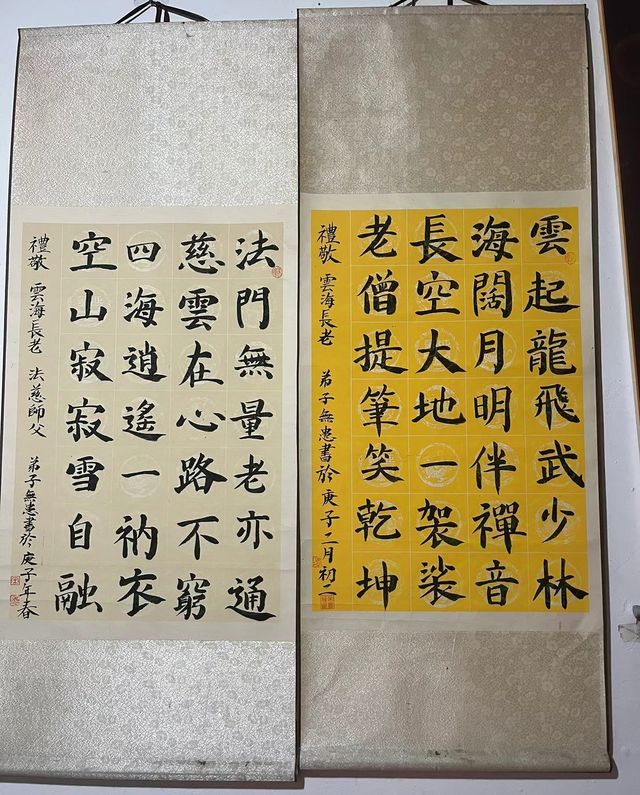 雲起龍飛武少林
海闊月明伴禪音
長空大地一袈裟
老僧提筆笑乾坤
禮敬 雲海長老 弟子無患書於庚子二月初二
法門無量老亦通
慈雲在心路不窮
四海逍遙一衲衣
空山寂寂雪自融
禮敬 雲海長老 法慈師父 弟子無患書於庚子年春